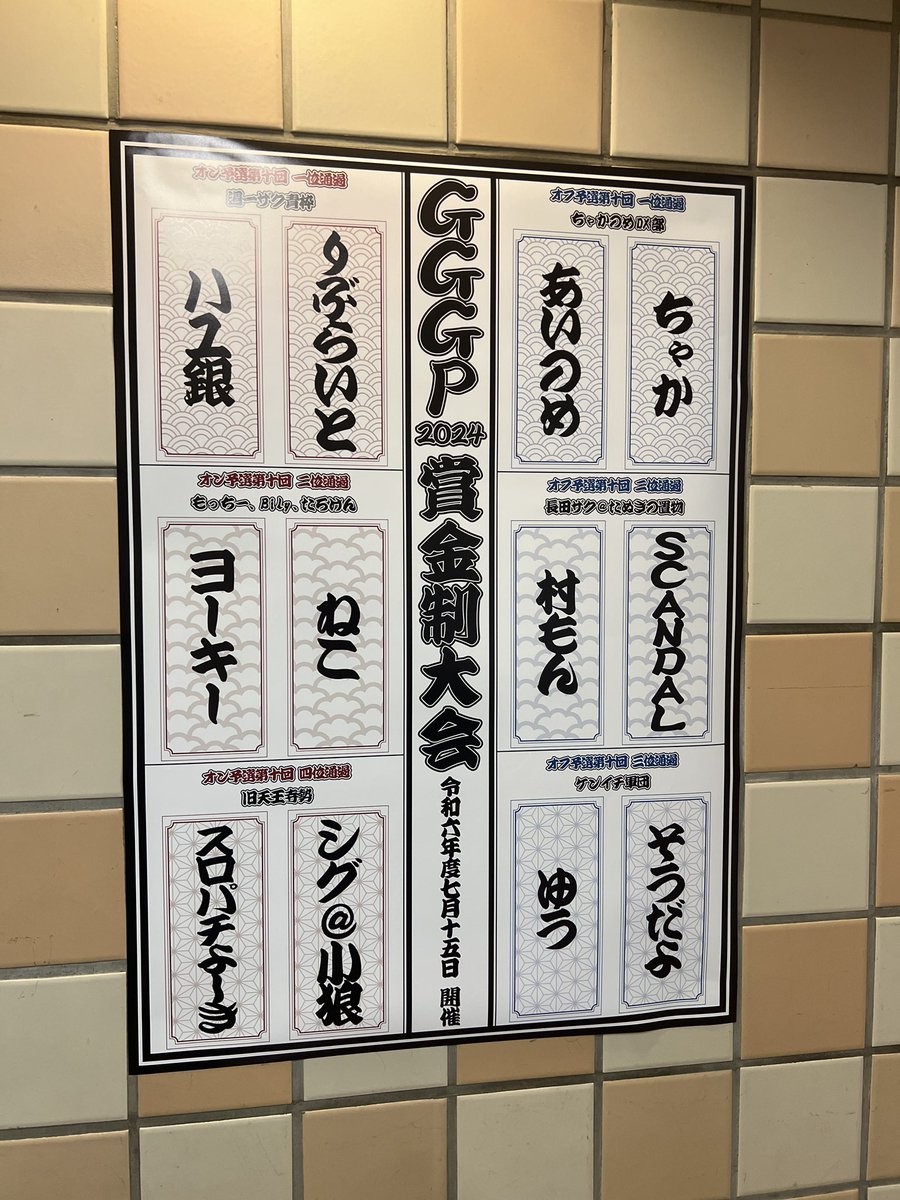 GGGP2024賞金制大会
令和六年度七月十五日 開催
オフ予選第十回 一位通過
ちゃかつめDX部
ちゃか
あいつめ
オフ予選第十回 二位通過
長田ザク@たぬきの置物
SCANDAL
村もん
オフ予選第十回 三位通過
ケンイチ軍団
そうだよ
ゆう
オン予選第十回 一位通過
週一ザク貴粋
りぶらいと
ハユ銀
オン予選第十回 三位通過
もっちー、Bily、たぢけん
ねこ
ヨーキー
オン予選第十回 四位通過
旧天王寺勢
シグ@小狼
スロパチよーき